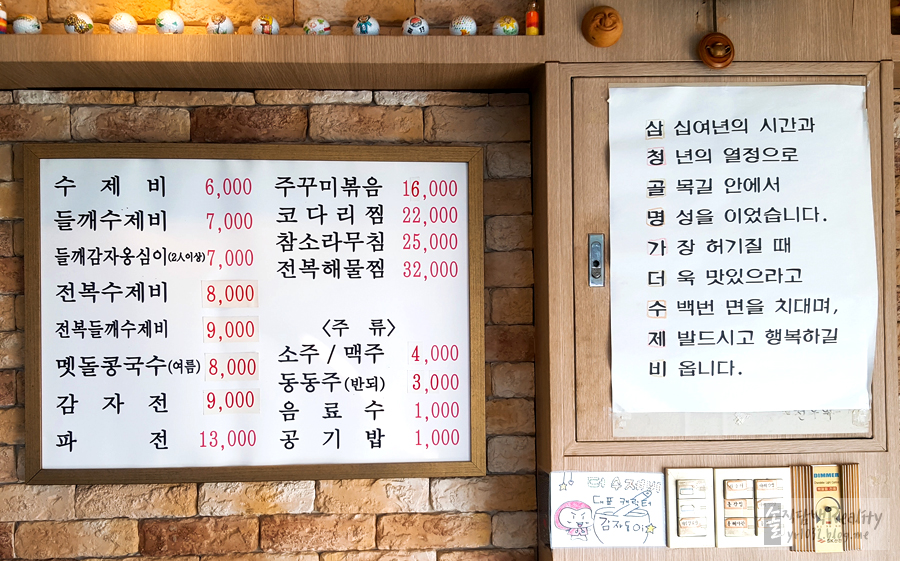 수 제 비 6,000
들깨수제비 7,000
들깨감자옹심이(2人이상) 7,000
전복수제비 8,000
전복들깨수제비 9,000
멧돌콩국수(여름) 8,000
감 자 전 9,000
파 전 13,000
주꾸미볶음 16,000
코다리찜 22,000
참소라무침 25,000
전복해물찜 32,000
〈주 류〉
소주 / 맥주 4,000
동동주(반되) 3,000
음 료 수 1,000
공 기 밥 1,000
삼 십여년의 시간과
청 년의 열정으로
골 목길 안에서
명 성을 이었습니다.
가 장 허기질 때
더 욱 맛있으라고
수 백번 면을 치대며,
제 발드시고 행복하길
비 옵니다.
더 수제비
대표 캐릭터
감자돌이
DIMMER